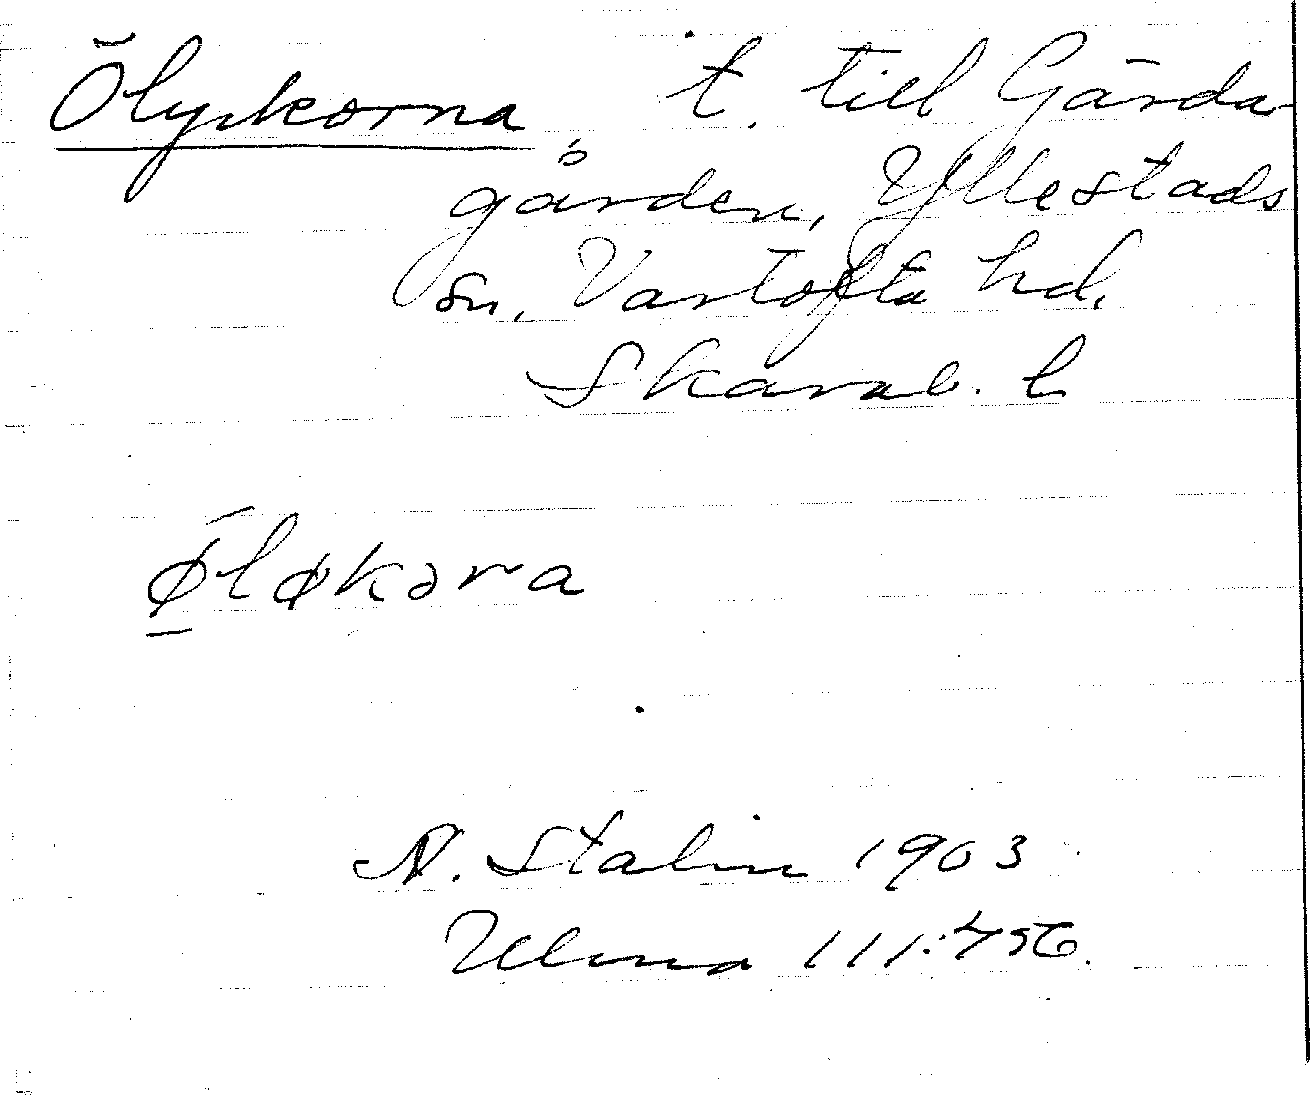 Ölyckorna, t. till Gärda-
gården, Yllestads
sn. Vartofta hd.
Skarab. l
ǿløkəra
A. Stalin 1903
Ulma 111:456.